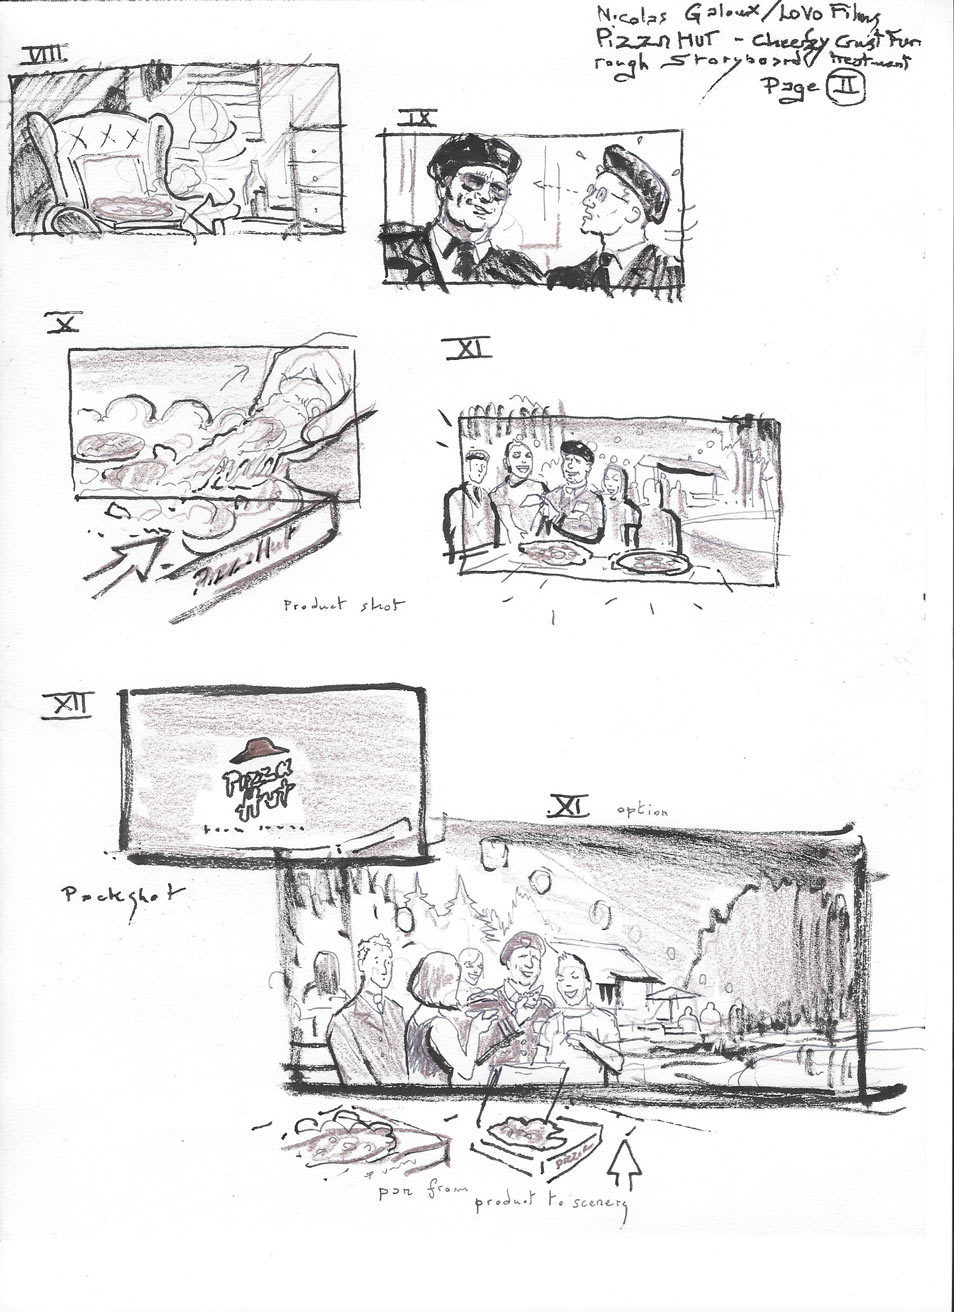 Nicolas Galoux/Lovo Films
Pizza Hut - Cheesy Crust Fun
rough Storyboard treatment
Page II
VIII
IX
X
XI
Pizza Hut
Product shot
XII
Pizza
Hut
Packshot
XI option
PIZZA
pan from
product to scenery